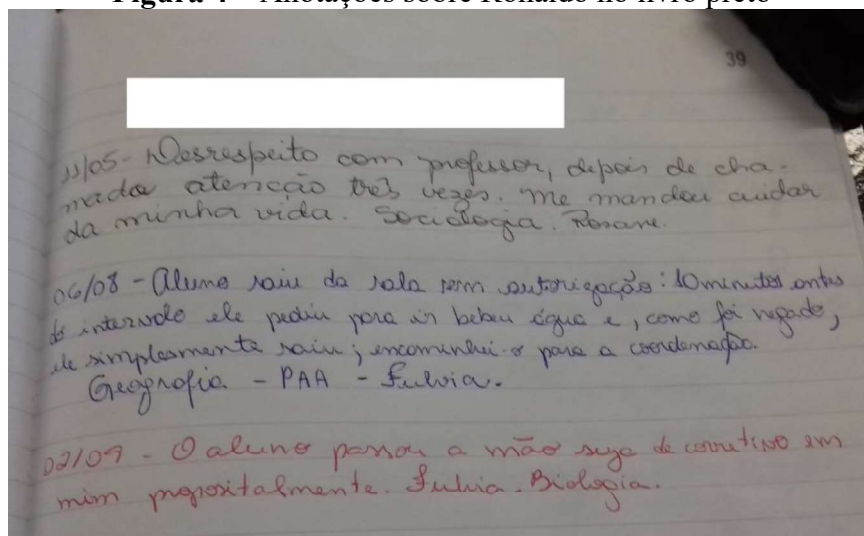 Figura 4 – Anotações sobre Ronaldo no livro preto
39
11/05 - Desrespeito com professor, depois de cha-
mada atencção três vezes. me mandou cuidar
da minha vida. Sociologia. Rosane.
06/08 - Aluno saiu da sala sem autorização: 10 minutos antes
do intervalo ele pediu para ir beber água e, como foi negado,
ele simplesmente saiu; encaminhei-o para a coordenação.
Geografia - PAA - Fulvia.
02/09 - O aluno passou a mão suja de corretivo em
mim propositalmente. Fulvia. Biologia.